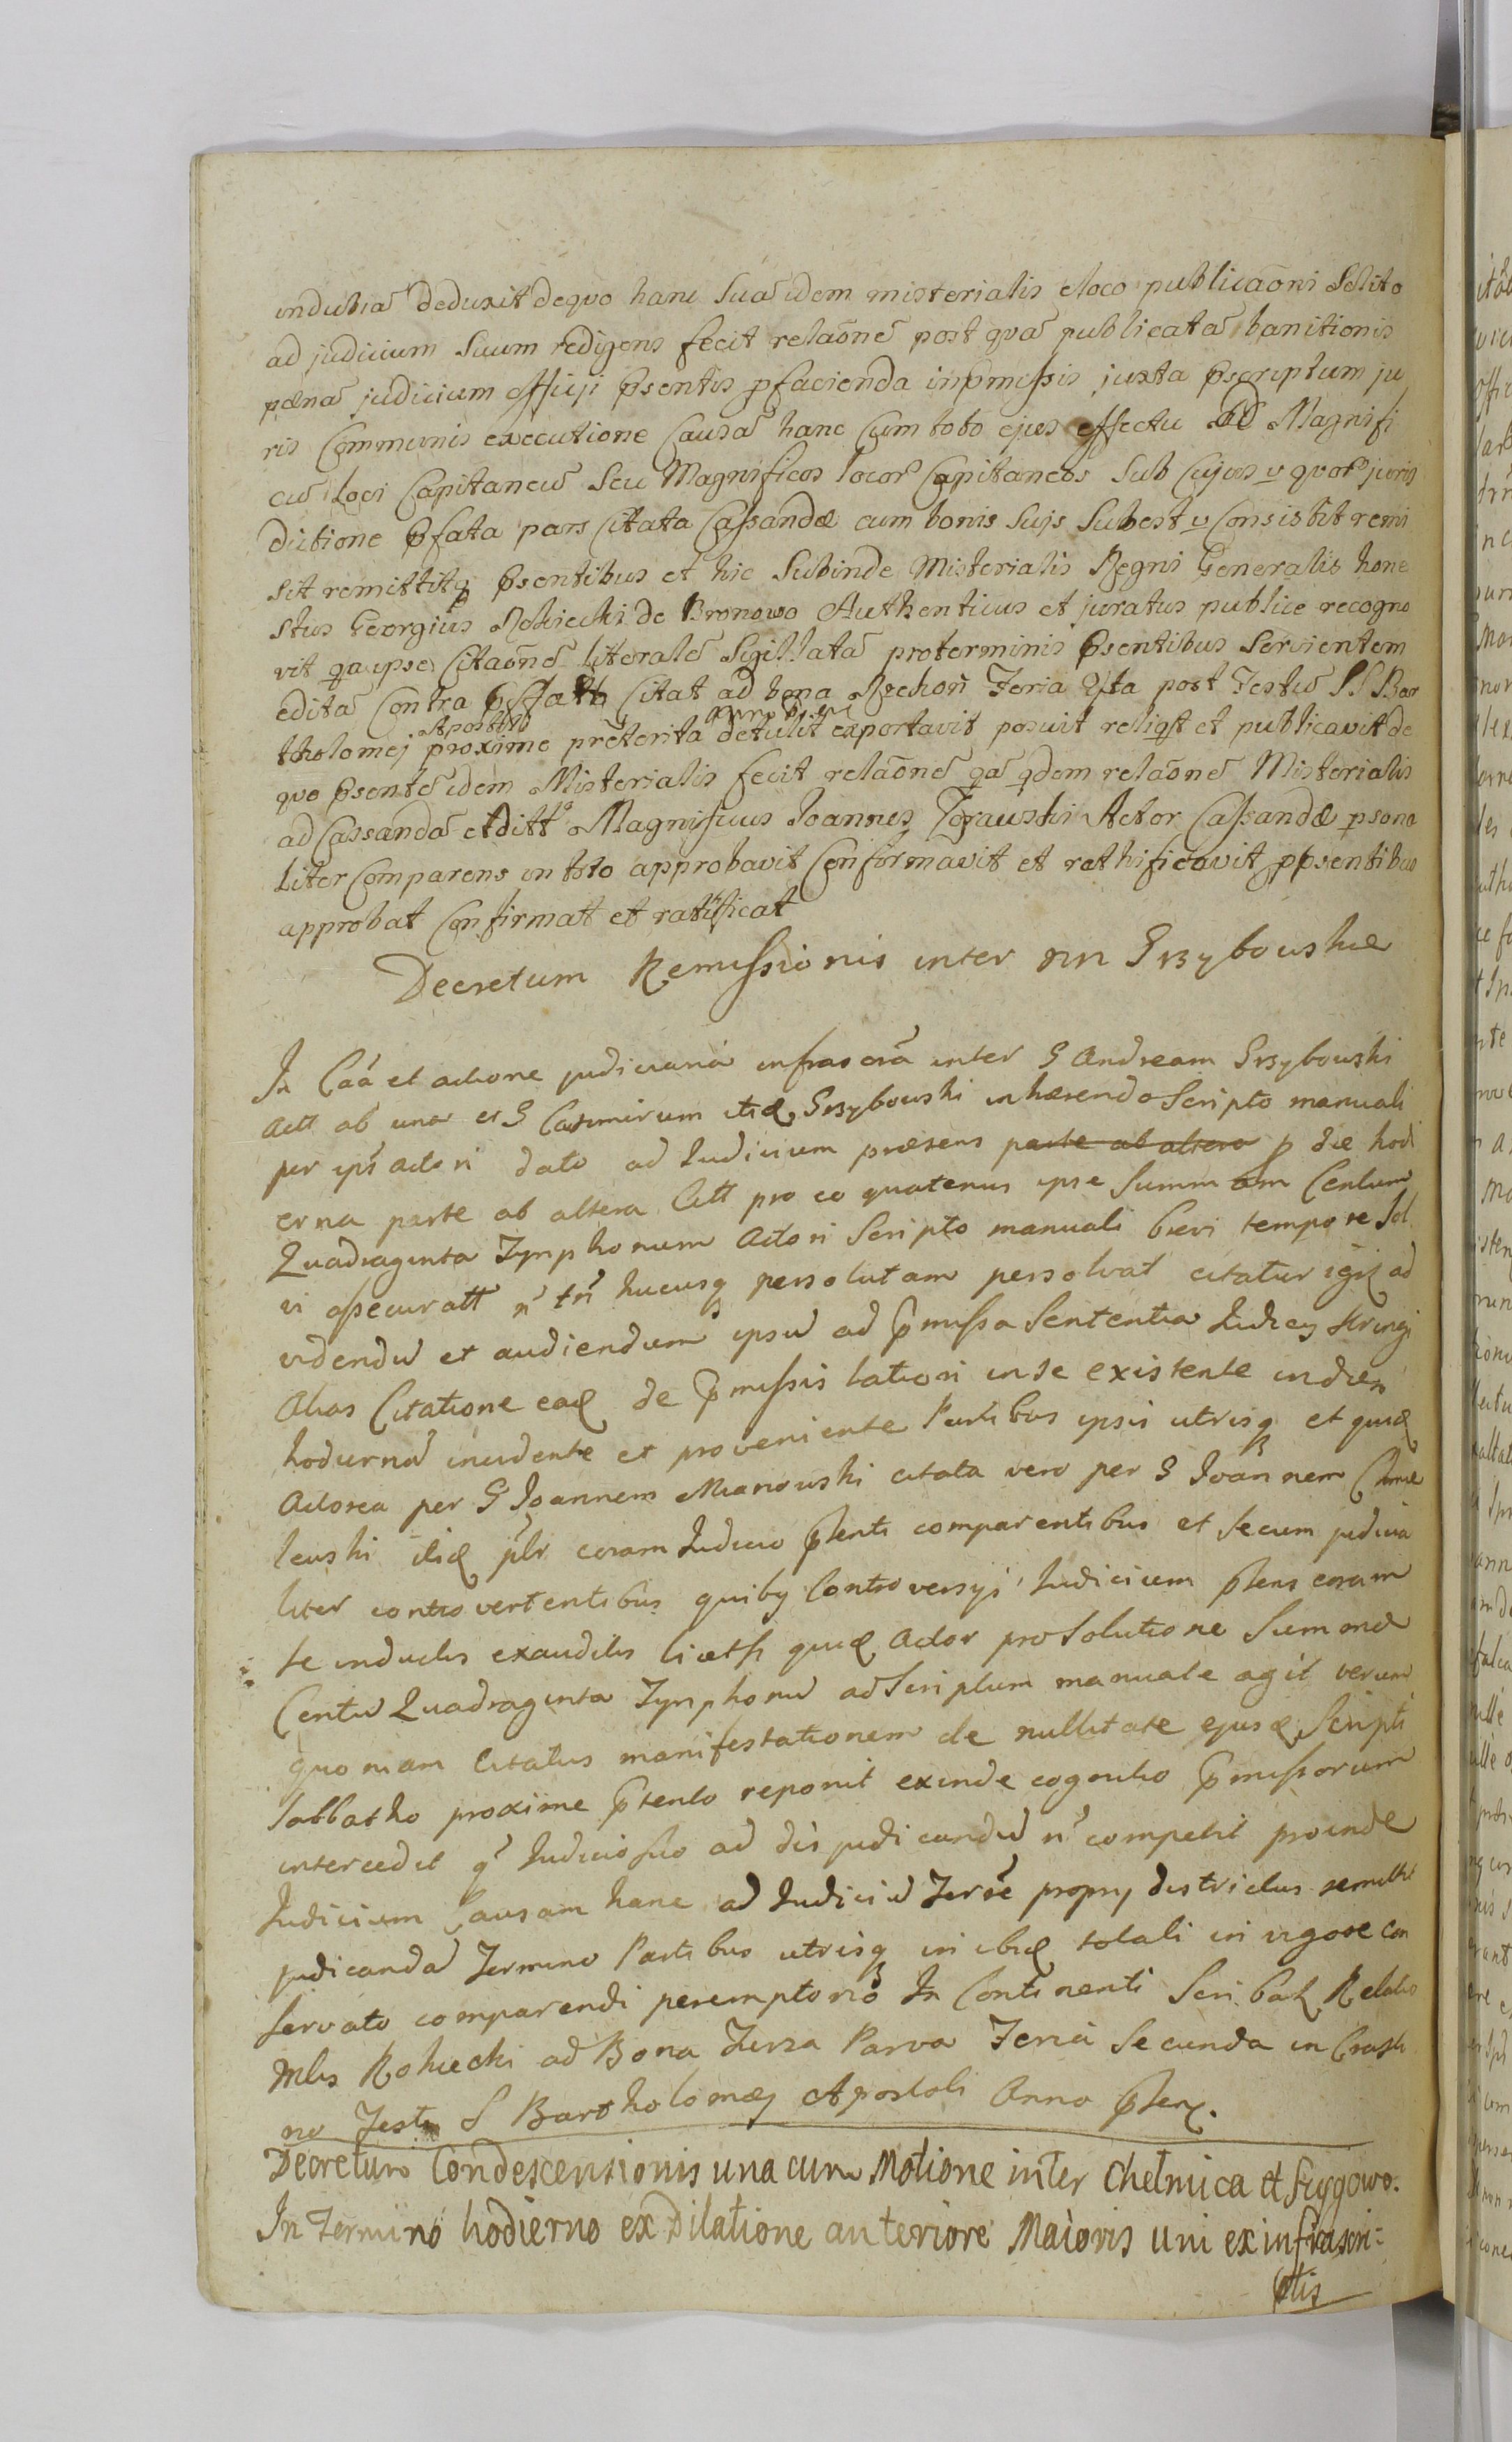 indubia᷉ deduxit de quo hanc sua᷉ idem misterialis eloco publicaōni Solito
ad judicium Suum redigens fecit relaōne᷉ post qua᷉ publicata᷉ banitionis
pæna᷉ judicium officji p̄sentis p facienda in p̄missis juxta p̄scriptum ju
ris Communis executione Causa᷉ hanc Cum toto ejus effectu ad Magnifi
cu᷉ Loci Capitaneu᷉ Seu Magnificos locor᷉ Capitaneos Sub Cujus v quor᷉ juris
dictione p̄fata pars Citata Cassandæ cum bonis Sujs Subest v Consistit remi
sit remittitq p̄sentibus et hic Subinde Misterialis Regni Generalis hone
stus Georgius Rokicki de Bronowo Authenticus et juratus publice recogno
vit qa ipse Citaōne᷉ literale᷉ Sigillata᷉ pro terminis p̄sentibus Servientem
edita᷉ Contra Citat ad bona Feria post Festu᷉ S S Bar
tholomej Apostoli proxime preterita detulit exportavit posuit reliqst et publicavit de
quo p̄sente᷉ idem Misterialis fecit relaōne᷉ qa᷉ qdem relaōne᷉ Misterialis
ad Cassanda᷉ Magnificus Joannes Actor Cassandæ psona
liter Comparens in toto approbavit Confirmavit et rathificavit p p̄sentibus
approbat Confirmat et ratificat
Decretum Remissionis inter nn Grzybowskie
In Caa᷉ et actione judiciaria infrascra᷉ inter G Andream Grzybowski
Actt ab una et G Casimirum itid Grzybowski inhærendo Scripto manuali
per ips᷉ actori dato ad Judicium præsens parte ab altera p die hodi
erna parte ab altera Citt pro eo quatenus ipse Summam Centum
Quadraginta Tynphonum Actori Scripto manuali brevi tempore Sol
vi assecuratt n᷉ tn᷉ hucusq persolutam persolvat citatur igiz ad
videndu᷉ et audiendum ipsu᷉ ad p̄missa Sententia Judicy stringi
Alias Citatione ead de p̄missis latiori in se existente in die᷉
hodierna᷉ incidente et proveniente Partibus ipsis utrisq et quid
Actorea per G Joannem Mianowski citata vero per G Joannem Chmie
lewski itid plr coram Judicio p̄senti comparentibus et Secum judicia
liter controvertentibus quibq Controversys Judicium p̄sens coram
se inductis exauditis licetsi quid Actor pro Solutione Summæ
Centu᷉ Quadraginta Tynphonu᷉ ad Scriptum manuale agit verum
quoniam Citatus manifestationem de nullitate ejusd Scripti
Sabbatho proxime p̄terito reponit exinde cognitio p̄missorum
intercedit q᷉ Judicio suo ad disjudicandu᷉ n᷉ competit proinde
Judicium Causam hanc ad Judiciu᷉ Terre᷉ propry districtus remittit
judicanda᷉ Termino Partibus utrisq in ibid totali in vigore con
servato comparendi peremptorio In Continenti Scribatz Relatio
Mlis Rokicki ad Bona Jerza Parva Feria Secunda in Crasti
no Festi S Bartholomæj Apostoli Anno p̄senz.
Decretum Condescensionis una cum Motione inter Chełmica et
In Termino hodierno ex Dilatione anteriore Maioris uni ex infrascri=
ptis